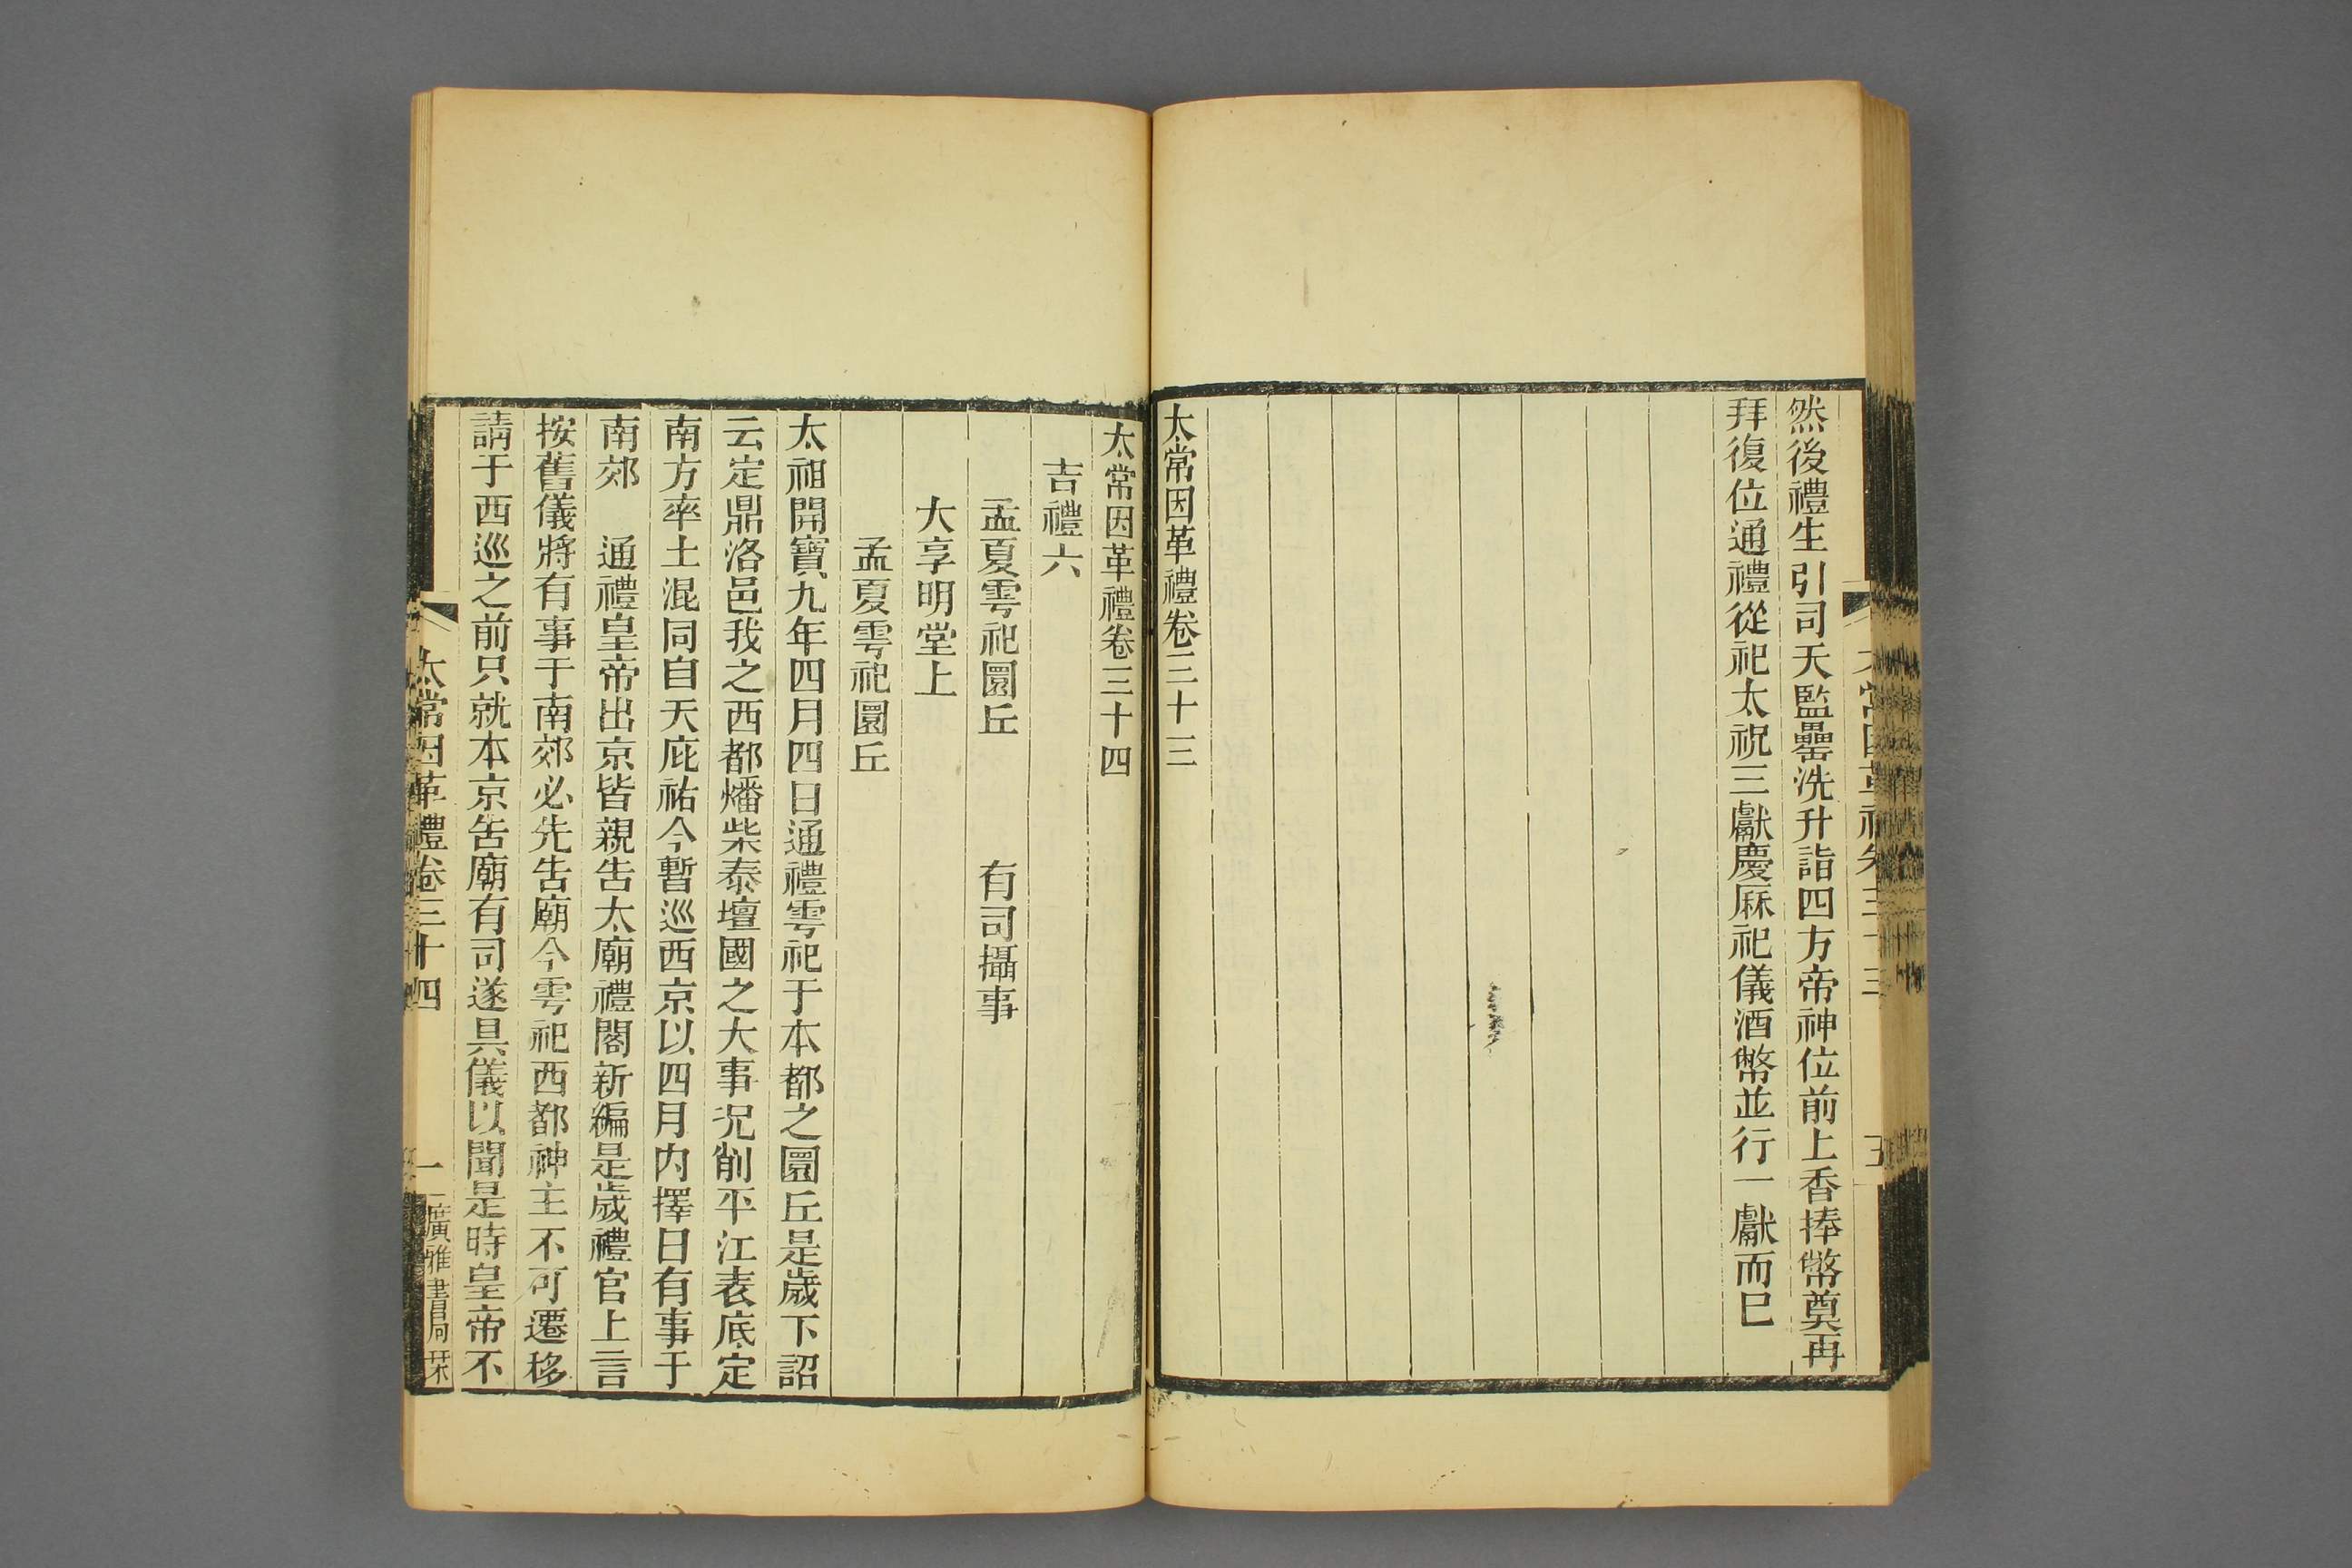 然後禮生引司天監罍洗升詣四方帝神位前上香捧幣奠再
拜復位通禮從祀太祝三獻慶厤祀儀酒幣並行一獻而巳
太常因革禮卷三十三
太常因革禮卷三十四
吉禮六
孟夏雩祀圜丘　有司攝事
大享明堂上
孟夏雩祀圜丘
太祖開寶九年四月四日通禮雩祀于本都之圜丘是歲下詔
云定鼎洛邑我之西都燔柴泰壇國之大事况削平江表底定
南方率土混同自天庇祐今暫巡西京以四月内擇日有事于
南郊　通禮皇帝出京皆親告太廟禮閣新編是歲禮官上言
按舊儀將有事于南郊必先告廟今雩祀西都神主不可遷移
請于西巡之前只就本京告廟有司遂具儀以聞是時皇帝不
太常因革禮卷三十四
一
廣雅書局栞